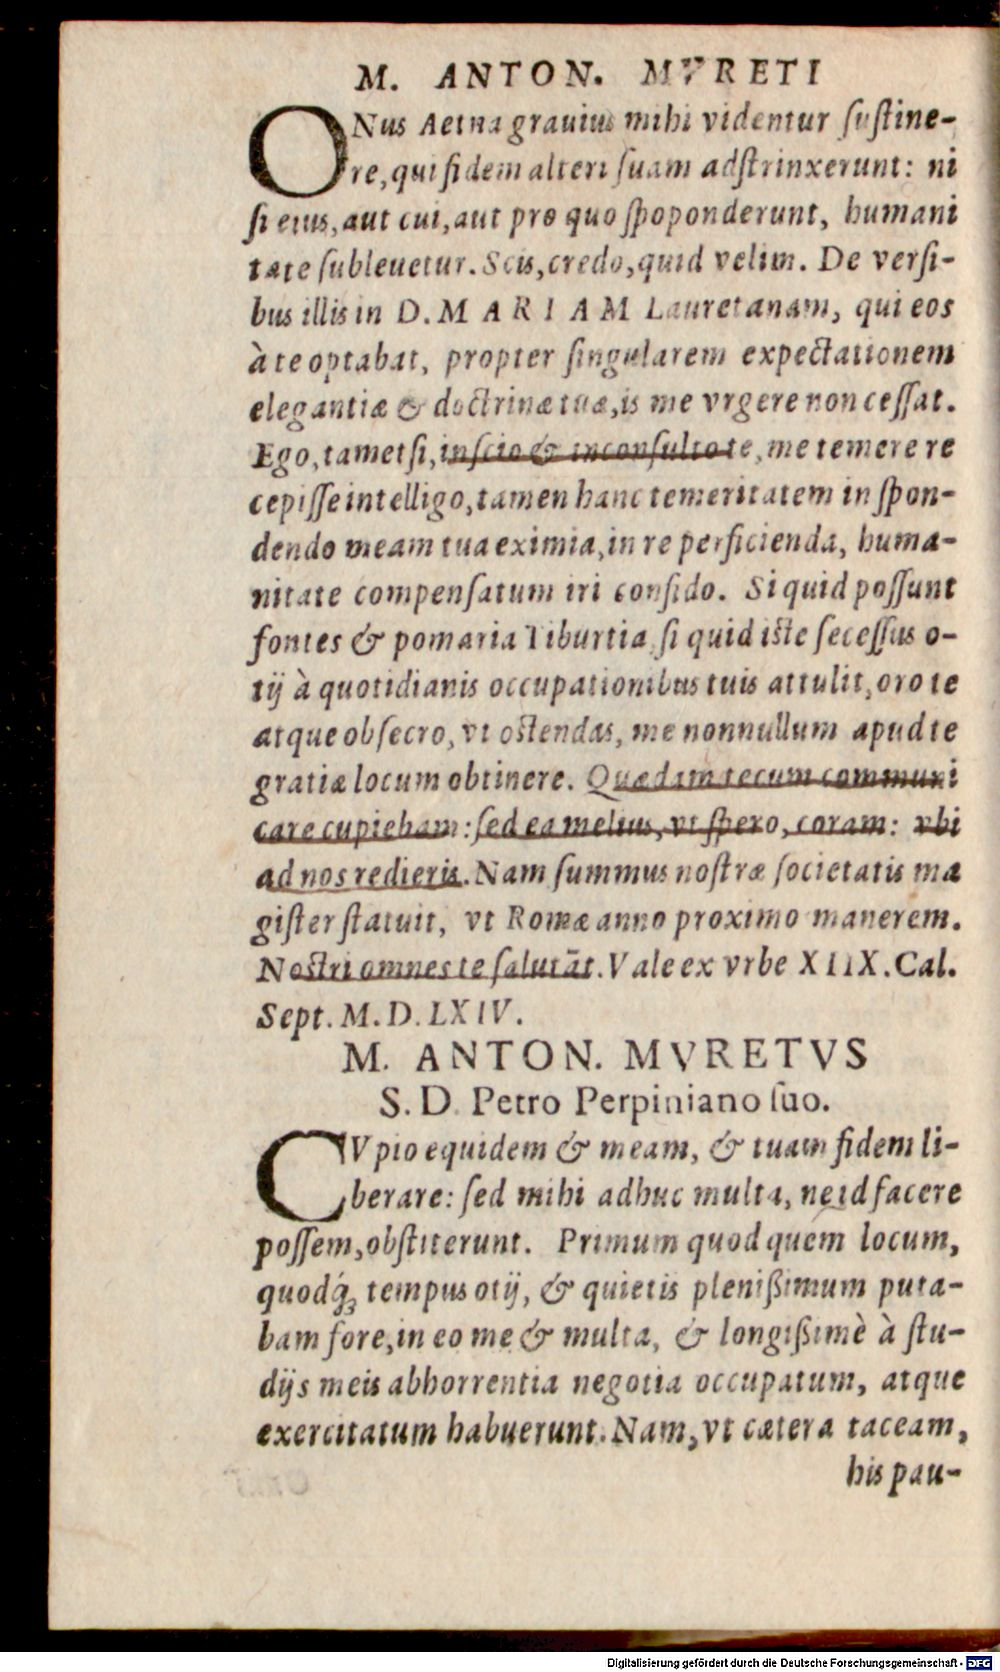 M. ANTON. MVRETI
ONus Aetna grauius mihi videntur ſuſtine-
re, qui fidem alteri ſuam adſtrinxerunt: ni
ſi eius, aut cui, aut pro quo ſpoponderunt, humani
tate ſubleuetur. Scis, credo, quid velim. De verſi-
bus illis in D. MARIAM Lauretanam, qui eos
à te optabat, propter ſingularem expectationem
elegantiæ & doctrinæ tuæ, is me vrgere non ceſſat.
Ego, tametſi, inſcio & inconſulto te, me temere re
cepiſſe intelligo, tamen hanc temeritatem in ſpon-
dendo meam tua eximia, in re perficienda, huma-
nitate compenſatum iri confido. Si quid poſſunt
fontes & pomaria Tiburtia, ſi quid iſte ſeceſſus o-
tij à quotidianis occupationibus tuis attulit, oro te
atque obſecro, vt oſtendas, me nonnullum apud te
gratiæ locum obtinere. Quædam tecum communi
care cupiebam: ſed ea melius, vt ſpero, coram: vbi
ad nos redieris. Nam ſummus noſtræ ſocietatis ma
giſter ſtatuit, vt Romæ anno proximo manerem.
Noſtri omnes te ſalutāt. Vale ex vrbe XIIX. Cal.
Sept. M. D. LXIV.
M. ANTON. MVRETVS
S. D. Petro Perpiniano ſuo.
CVpio equidem & meam, & tuam fidem li-
berare: ſed mihi adhuc multa, ne id facere
poſſem, obſtiterunt. Primum quod quem locum,
quodq́ꝫ tempus otij, & quietis pleniſsimum puta-
bam fore, in eo me & multa, & longiſsimè à ſtu-
dijs meis abhorrentia negotia occupatum, atque
exercitatum habuerunt. Nam, vt cætera taceam,
his pau-
Digitalisierung gefördert durch die Deutsche Forschungsgemeinschaft - DFG